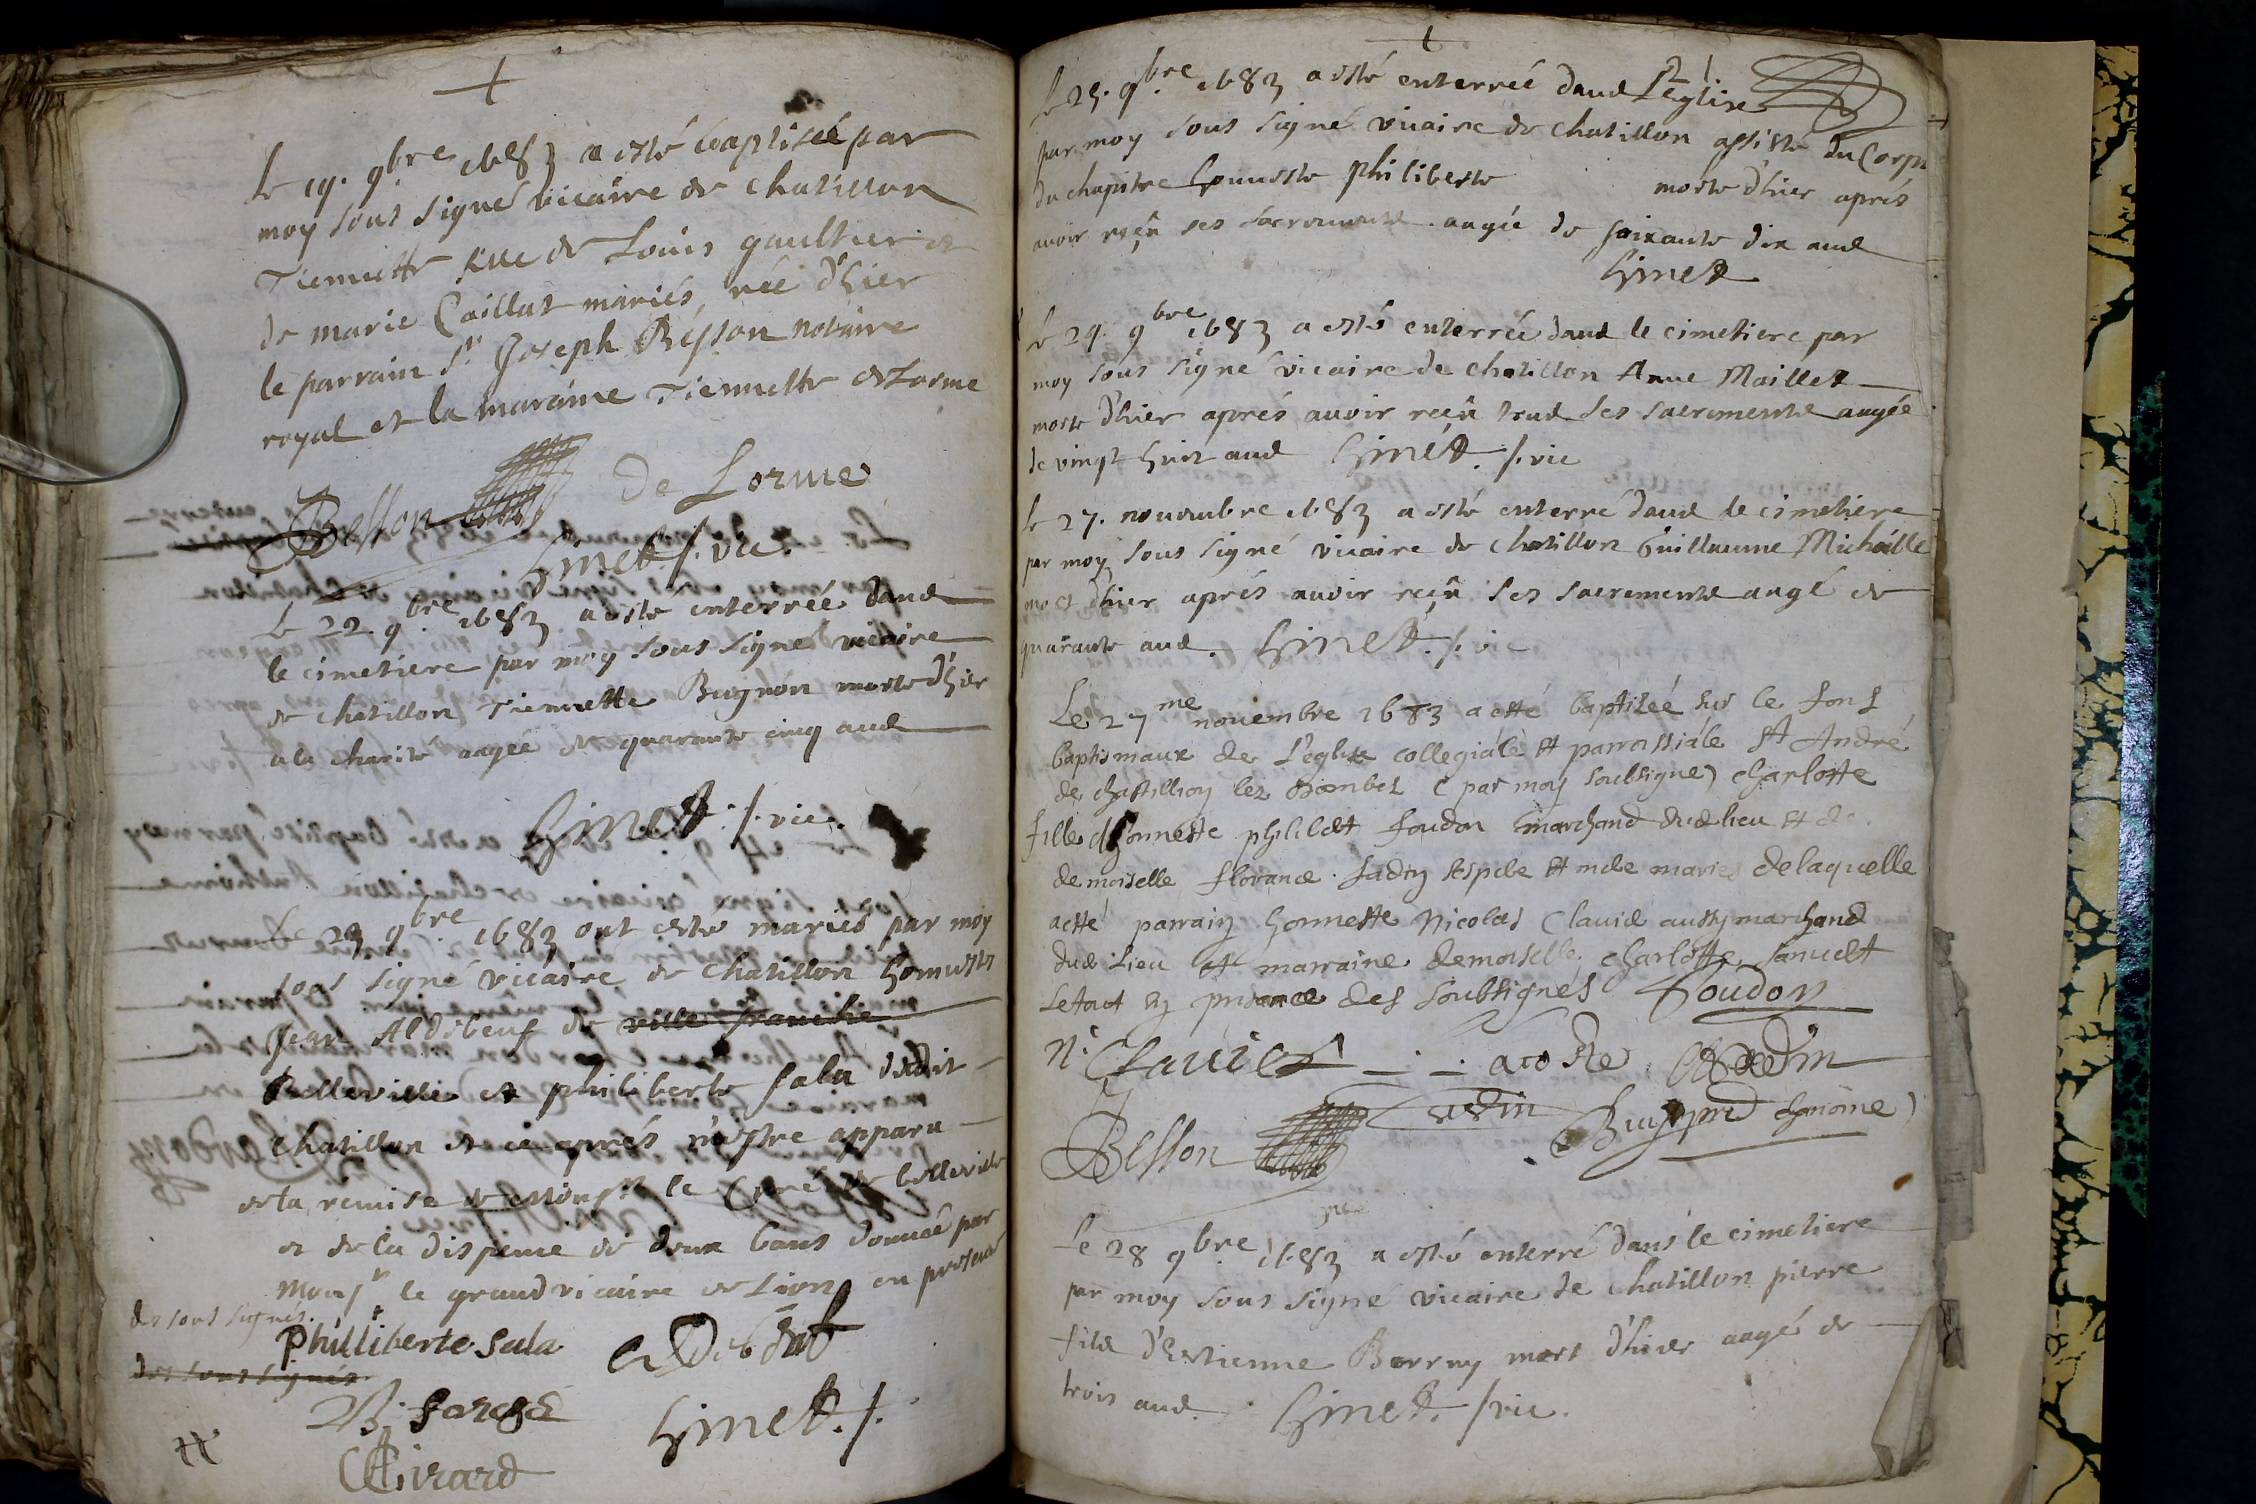 Le 19. 9bre 1683 a esté baptisée par
moy sous signé vicaire de chatillon
Tiennette fille de Louis gaultier et
de marie Caillat mariés, née d'hier
le parrain Sr Joseph Besson notaire
royal et la maraine Tiennette de Lorme
Besson de Lorme
himet /. vic.
Le 22. 9bre 1683 a esté enterrée dans
le cimetiere par moy sous signé vicaire
de chatillon Tiennette Buignon morte d'hier
a la charité aagée de quarante cinq ans
himet. /. vic.
Le 23 9bre 1683 ont esté mariés par moy
sous signé vicaire de chatillon honnestes
Jean Aldebeuf de ville franche
Belleville et philiberte Sala dudit
chatillon et ce aprés m'estre apparu
de la remise de Monsr le Curé de belleville
et de la dispense de deux bans donnée par
Monsr le grand vicaire de Lion en presence
des sous signés.
philliberte Sala
des sous signés
himet. /.
Girard
Le 25. 9bre 1683 a esté enterrée dans L'église
par moy sous signé vicaire de chatillon assisté du Corps
du chapitre honneste philiberte morte d'hier aprés
avoir reçû ses sacrements aagée de soixante dix ans
himet
Le 24. 9bre 1683 a esté enterrée dans le cimetiere par
moy sous signé vicaire de chatillon Anne Maillet
morte d'hier aprés avoir reçû tous ses sacrements aagée
de vingt huit ans himet. /. vic
Le 27. novembre 1683 a esté enterré dans le cimetiere
par moy sous signé vicaire de chatillon Guillaume Michaille
mort d'hier aprés avoir reçû ses sacrements aagé de
quarante ans. himet. /. vic
Le 27me novembre 1683 a esté baptisée sur le fonf
baptismaux de L'eglise collegiále et parroissiále St André
de chastillion les Dombes (par moy soubsigne) charlotte
fille d'honneste philibet foudon marchand dud lieu et de
demoiselle florance
mariés delaquelle
a esté parrain honneste Nicolas Clavié aussy marchand
dud Lieu et marraine demoiselle charlotte
Le tout en presance des soubsignés foudon
N. Clavier
Besson
Le 28 9bre 1683 a esté enterré dans le cimetiere
par moy sous signé vicaire de chatillon pierre
fils d'Estienne mort d'hier aagé de
trois ans. himet. /vic.